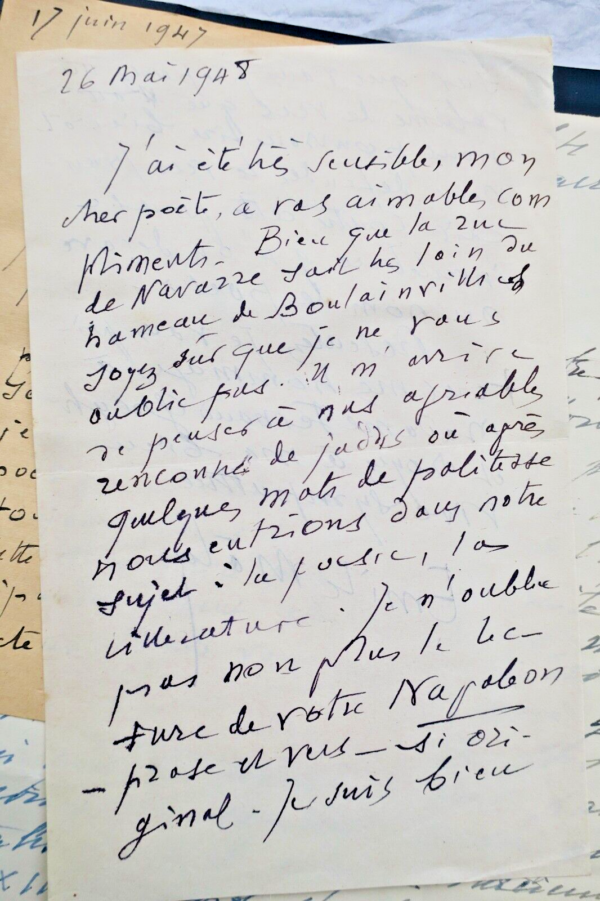 17 juin 1947
26 Mai 1948
J'ai été très sensible, mon
cher poète, à vos aimables com
pliments. Bien que la rue
de Navarre soit très loin du
hameau de Boulainvilliers
soyez sûr que je ne vous
oublie pas. Il m'arrive
de penser à nos agréables
rencontres de jadis où après
quelques mots de politesse
nous entrions dans notre
sujet : la poésie, la
littérature. Je n'oublie
pas non plus la lec-
ture de votre Napoléon
- prose et vers - si ori-
ginal. Je suis bien